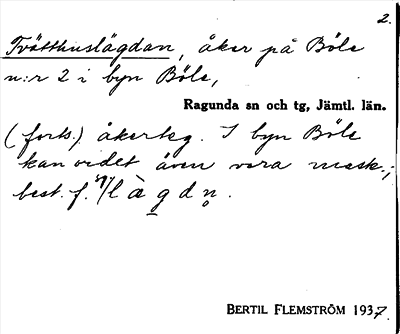 2.
Tvätthuslägdan, åker på Böle
n:r 2 i byn Böle,
Ragunda sn och tg, Jämtl. län.
(forts.) åkerteg. I byn Böle
kan ordet även vara mask.;
best. f. sg. lägdn.
BERTIL FLEMSTRÖM 1937.